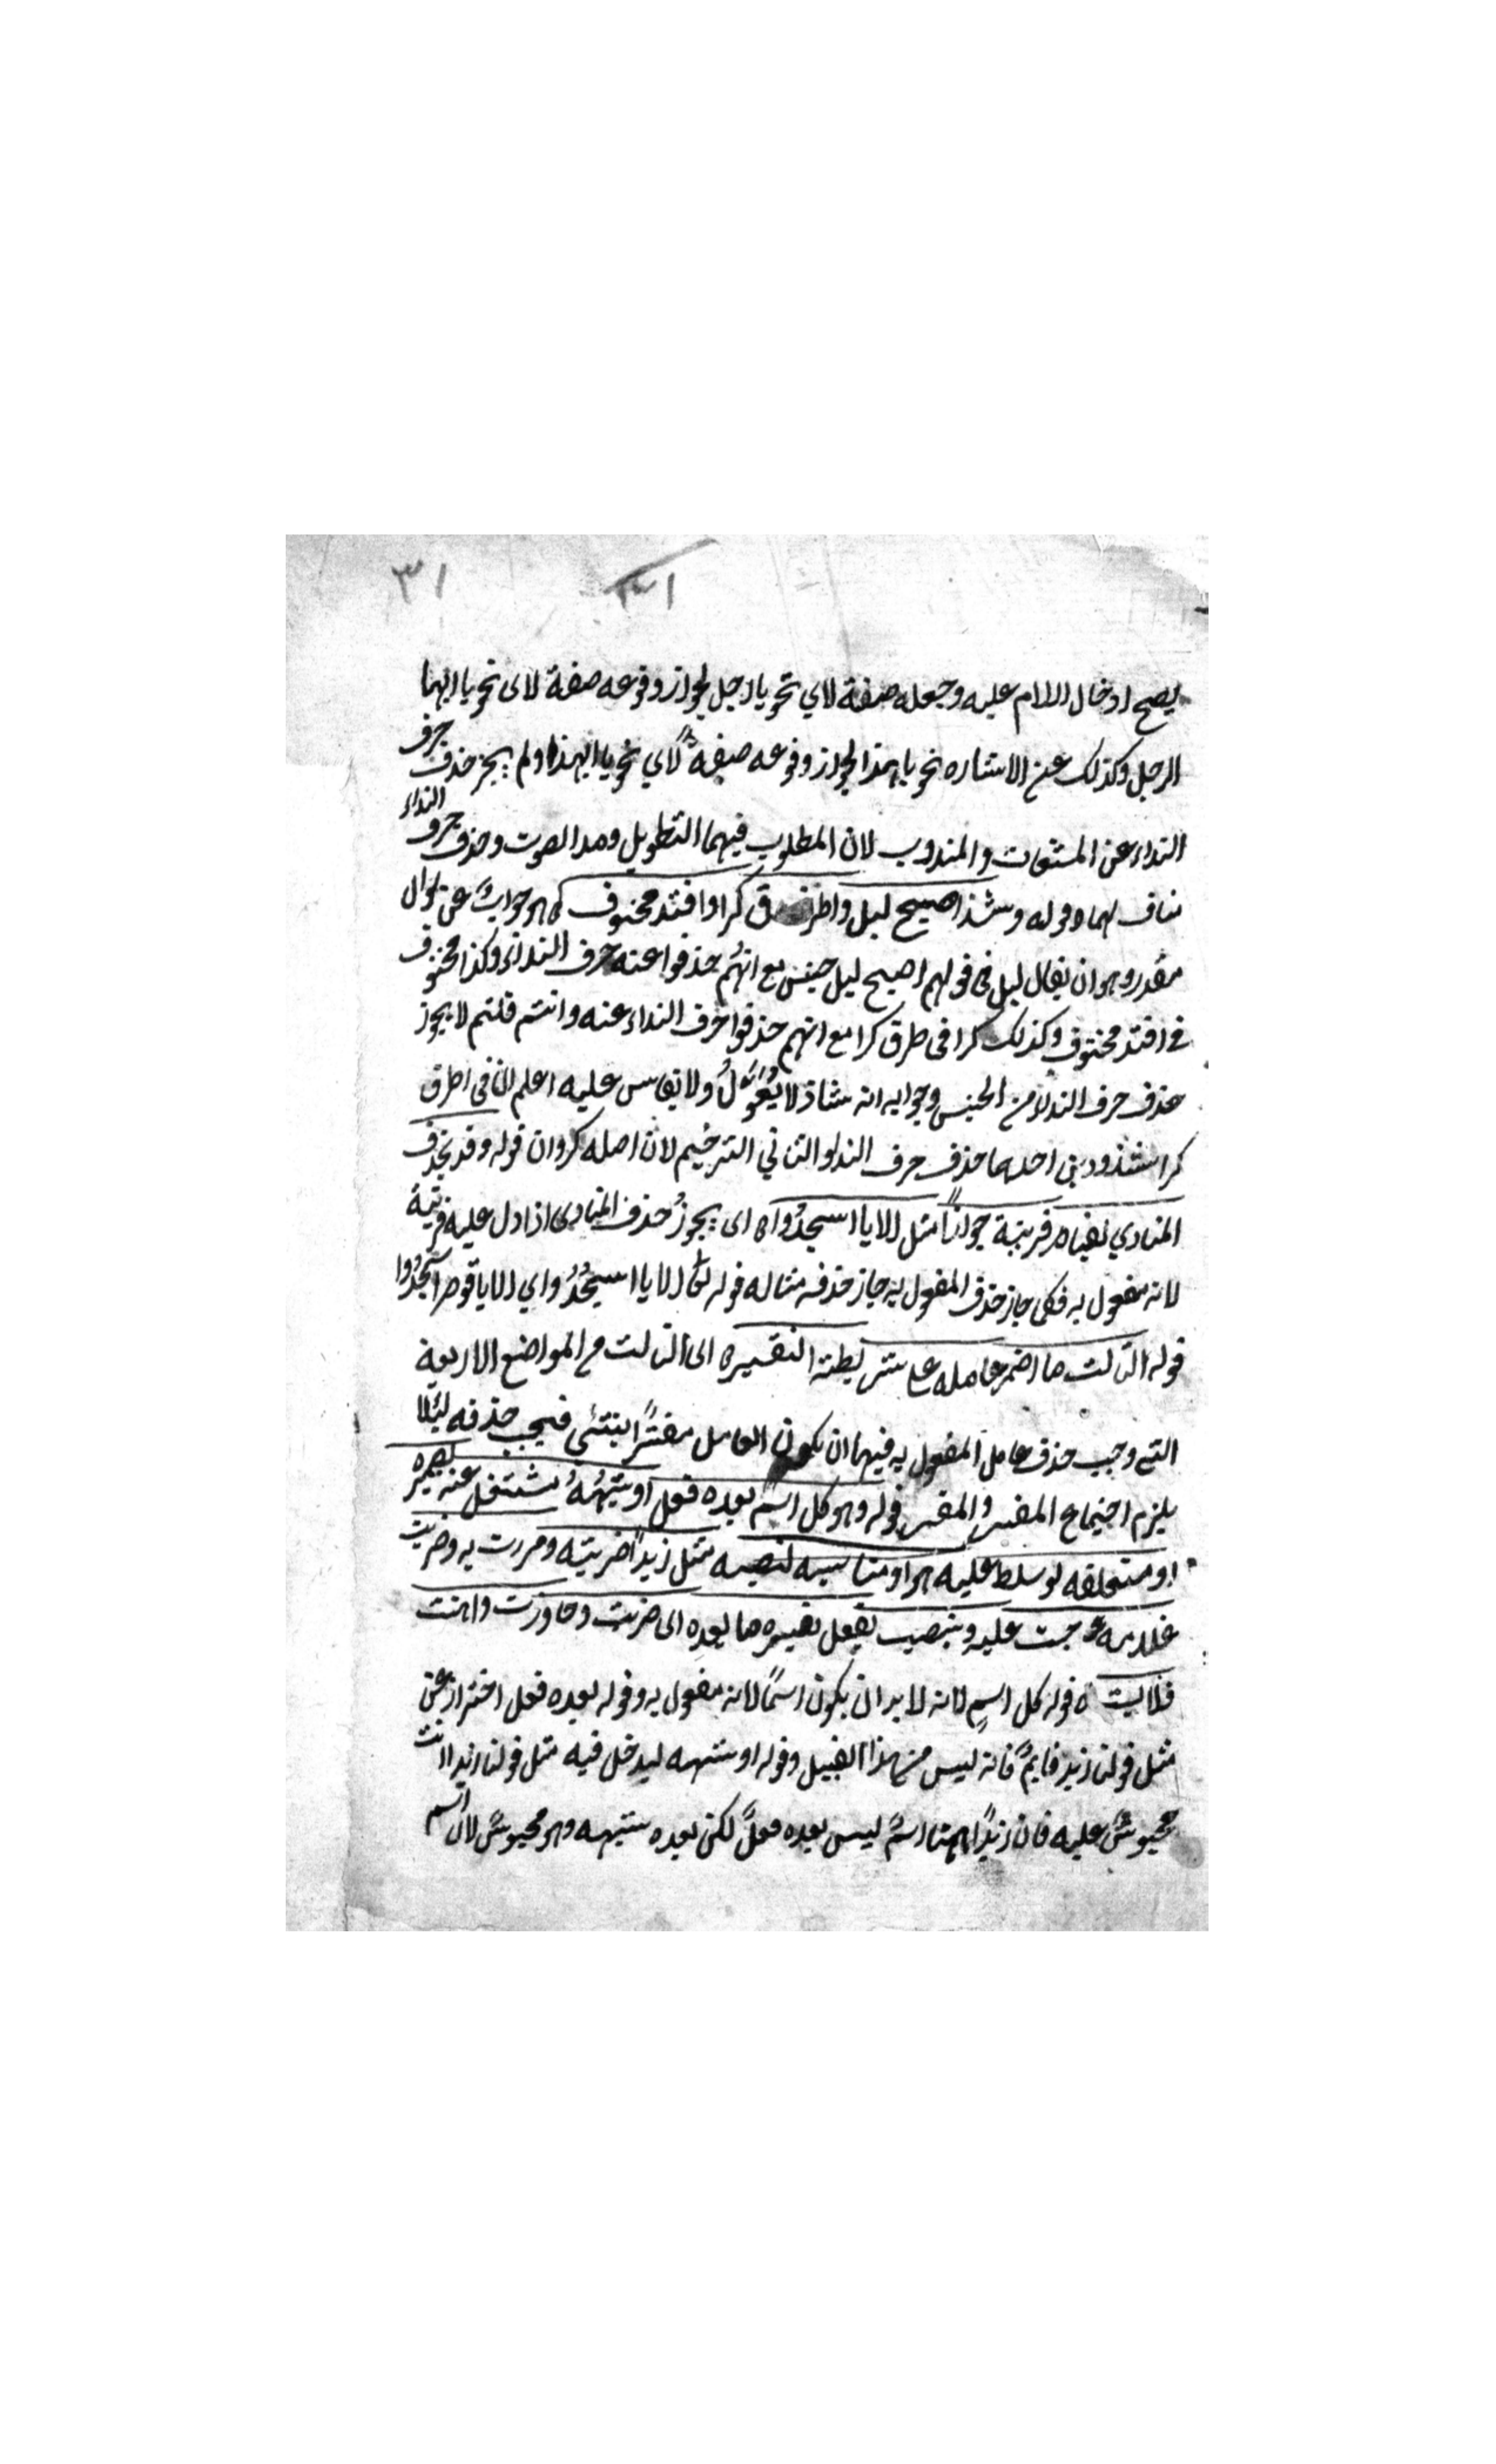 ٣١ ٣١
يصح ادخال اللام عليه وجعله صفة لاي نحو يا رجل لجواز وقوعه صفة لاى نحو يا ايها
الرجل وكذلك عن الاشاره نحو يا هذا لجواز وقوعه صفةً لاي نحو يا ايهذا ولم يجز حذف حرف
النداء عن المستغاث والمندوب لان المطلوب فيهما التطويل ومد الصوت وحذف حرف النداء
مناف لهما ه قوله وشذ اصبح ليل واطرق كرا وافتد مخنوق ه هو جوابٌ عن سوال
مقدر وهو ان يقال ليل فى قولهم اصبح ليل جنس مع انهم حذفوا عنه حرف النداء وكذا مخنوق
في افتد مخنوق وكذلك كرا فى طرق كرا مع انهم حذفوا حرف النداء عنه وانتم قلتم لا يجوز
حذف حرف النداء من الجنس وجوابه انه شاذ لا يُعَوَّلُ ولا يقاس عليه اعلم ان فى اطرق
كرا شذوذين احدهما حذف حرف النداء والثاني الترخيم لان اصله كروان قوله وقد يحذف
المنادي لقيام قرينة جوازاً مثل الا يا اسجدُوا ه اى يجوزُ حذف المنادى اذا دل عليه قرينة
لانه مفعول به فكما جاز حذف المفعول به جاز حذفه مثاله قوله تعالى الا يا اسجُدُوا اي الا يا قوم اسجُدُوا
قوله الثالث ما اضمر عامله على شريطة التفسير ه اى الثالث من المواضع الاربعة
التي وجب حذف عامل المفعول به فيها ان يكون العامل مفسَّراً بشئٍ فيجب حذفه لئلا
يلزم اجتماع المفسر والمفسر قوله وهو كل اسمٍ بعده فعل او شبهُهُ مشتغل عنه بضميره
او متعلقه لو سلط عليه هو او مناسبه لنصبه مثل زيداً ضربته ومررت به وضربت
غلامه وحبست عليه وينصب بفعل يفسره ما بعده اى ضربت وجاوزت واهنت
ولابست ه قوله كل اسمٍ لانه لابد ان يكون اسمًا لانه مفعول به وقوله بعده فعل احتراز عن
مثل قولنا زيد قايمٌ فانه ليس من هذا القبيل وقوله او شبهه ليدخل فيه مثل قولنا زيدا انت
محبوسٌ عليه فان زيداً ههنا اسمٌ ليس بعده فعلٌ لكن بعده شبهه وهو محبوسٌ لان اسم